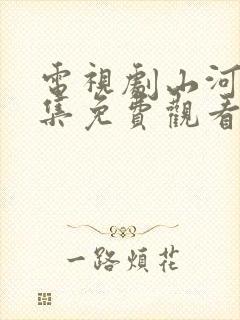 電視劇山河
集免費觀看
一路煩花